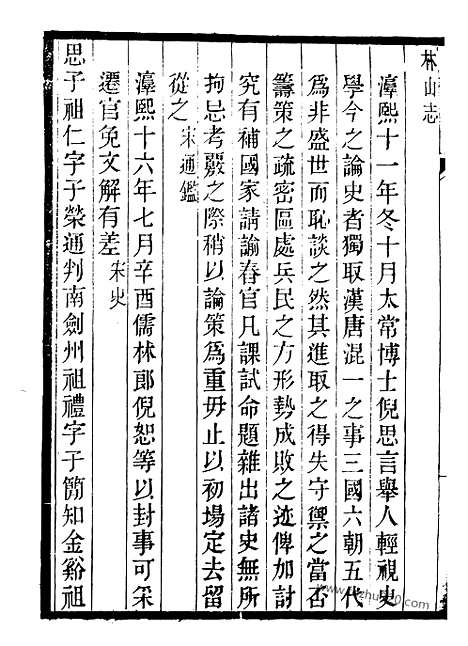 林山志
湻熙十一年冬十月太常博士倪思言舉人輕視史
學今之論史者獨取漢唐混一之事三國六朝五代
爲非盛世而恥談之然其進取之得失守禦之當否
籌策之疏密區處兵民之方形勢成敗之迹俾加討
究有補國家請諭春官凡課試命題雜出諸史無所
拘忌考覈之際稍以論策爲重毋止以初場定去留
從之宋通鑑
湻熙十六年七月辛酉儒林郞倪恕等以封事可采
遷官免文解有差宋史
思子祖仁字子榮通判南劍州祖禮字子簡知金谿祖